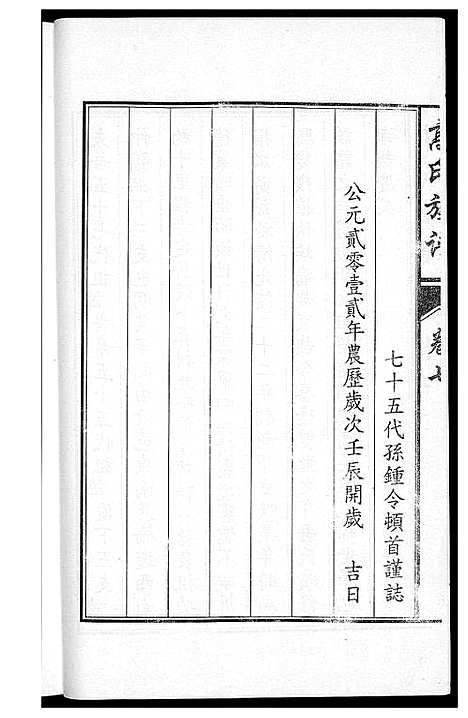 高氏族譜
卷七
七十五代孫鍾令頓首謹誌
公元貳零壹貳年農歷歲次壬辰開歲　吉日